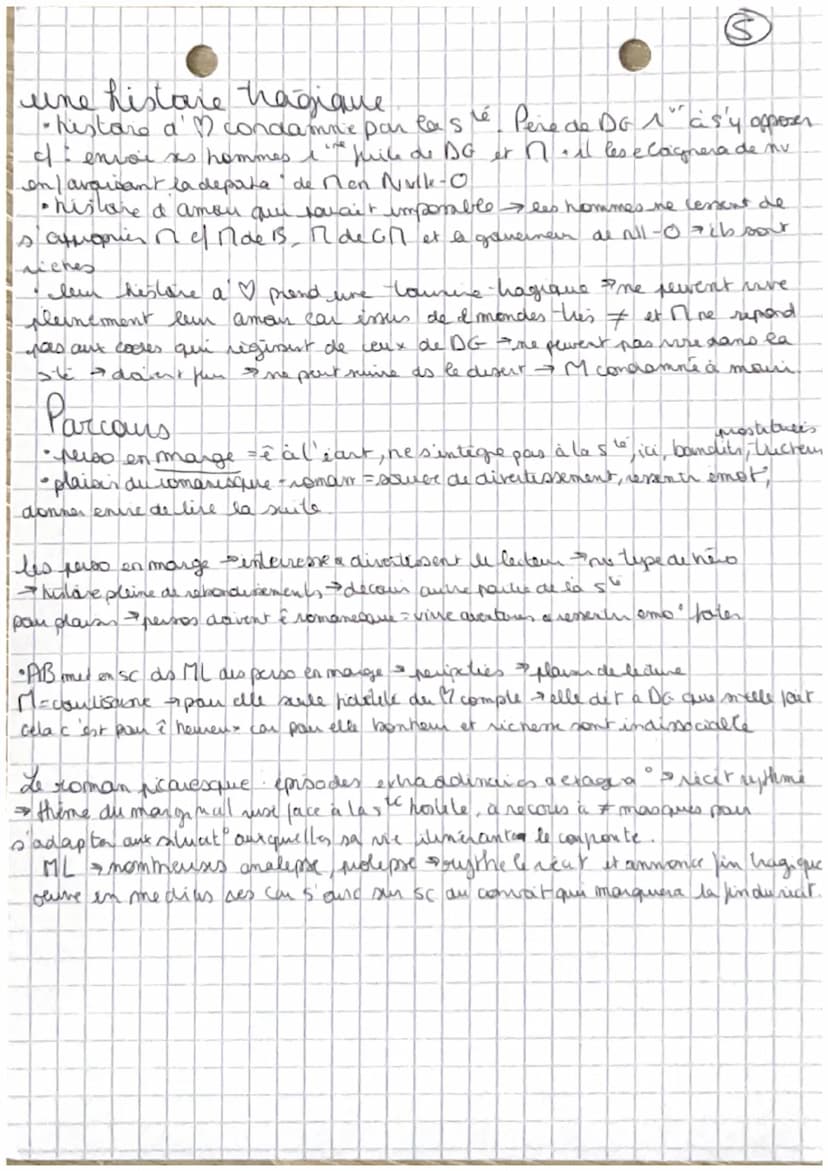 5
une histoire tragique
• histoire d'♡ condamnée par la sté. Père de DG 1er à s'y opposer
c/: envoi ses hommes 1ère fuite de DG et M • il les eloignera de nv
en la depart de M en Nvlle-O
• histoire d'amour qui serait impossible → les hommes ne cessent de
s'approprier M c/ M de B, M de GM et le gouverneur de nll-O → ils sont
riches
• leur histoire d'♡ prend une tournure tragique → ne peuvent vivre
pleinement leur amour car issus de 2 mondes très ≠ et M ne repond
pas aux codes qui régissent de ceux de DG → ne peuvent pas vivre dans la
sté → doivent fuir → ne peut survivre ds le desert → M condamnée à mourir.
Parcours
prostituées
• perso en marge = ê à l'écart, ne s'intègre pas à la sté, ici, bandits, tricheurs
• plaisir du romanesque - roman = source de divertissement, ressentir émot°,
donner envie de lire la suite
les perso en marge → interesse & divertissent le lecteur → nv type de héro
→ histoire pleine de rebondissements → decouvrir autre partie de la sté
pour plaisir → persos doivent ê romanesque = vivre aventures & ressentir emo° fortes
• AB met en sc ds ML des perso en marge → peripeties → plaisir de lecture
M = courtisane → pour elle seule fidélité du ♡ compte → elle dit à DG que si elle fait
cela c'est pour ê heureux car pour elle bonheur et richesse sont indissociable
Le roman picaresque : episodes extraordinaires & exagera° → récit rythmé
→ thème du marginal rusé face à la sté hostile, a recours à ≠ masques pour
s'adapter aux situat° auxquelles sa vie itinérante le confronte.
ML → nommeuses analepse, prolepse → rythe le récit et annonce fin tragique
ouvre in medias res car s'ouvre sur sc du convoit qui marquera la fin du récit.